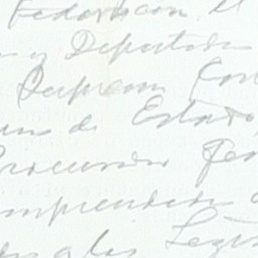 Federacion el
y Deputado
Suprema Cor
de Estado,
Procurador Gen
comprendido
a las Legis